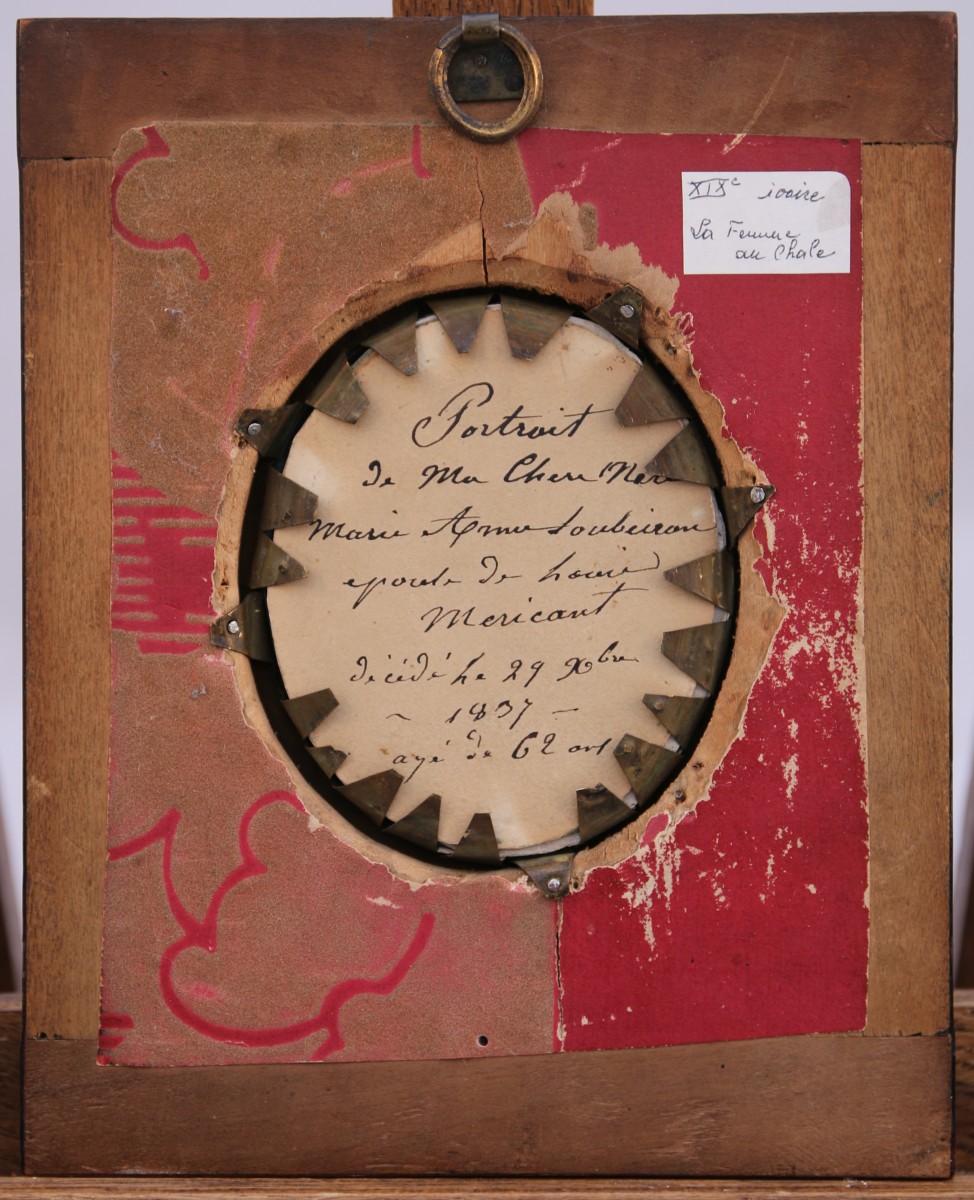 XIXe ivoire
La Femme
au Chale
Portrait
de Ma Chere Mere
Marie Anne Soubeiran
epouse de
Mericant
décédé le 29 Xbre
~ 1837 ~
agé de 62 ans